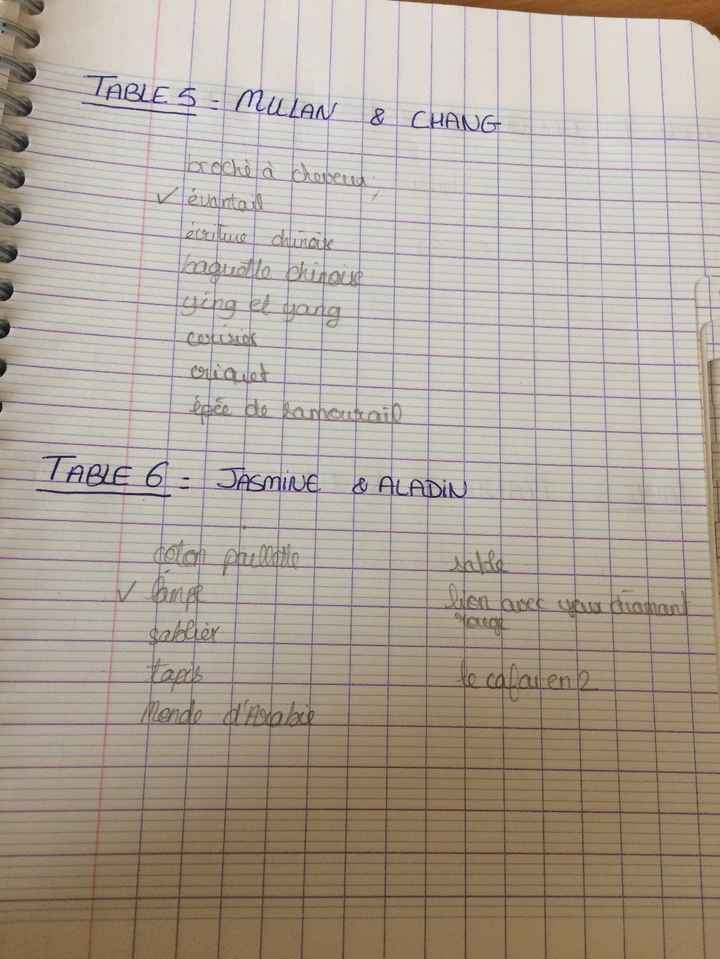 TABLE 5 = MULAN & CHANG
broche à cheveux,
✓ évantail
écriture chinoise
baguette chinoise
ying et yang
cerisier
criquet
épée de samourail
TABLE 6 = JASMINE & ALADIN
coton
✓ lampe
sablier
tapis
Monde d'Arabie
sable
lien avec yeux diamant
rouge
le cafar en 2